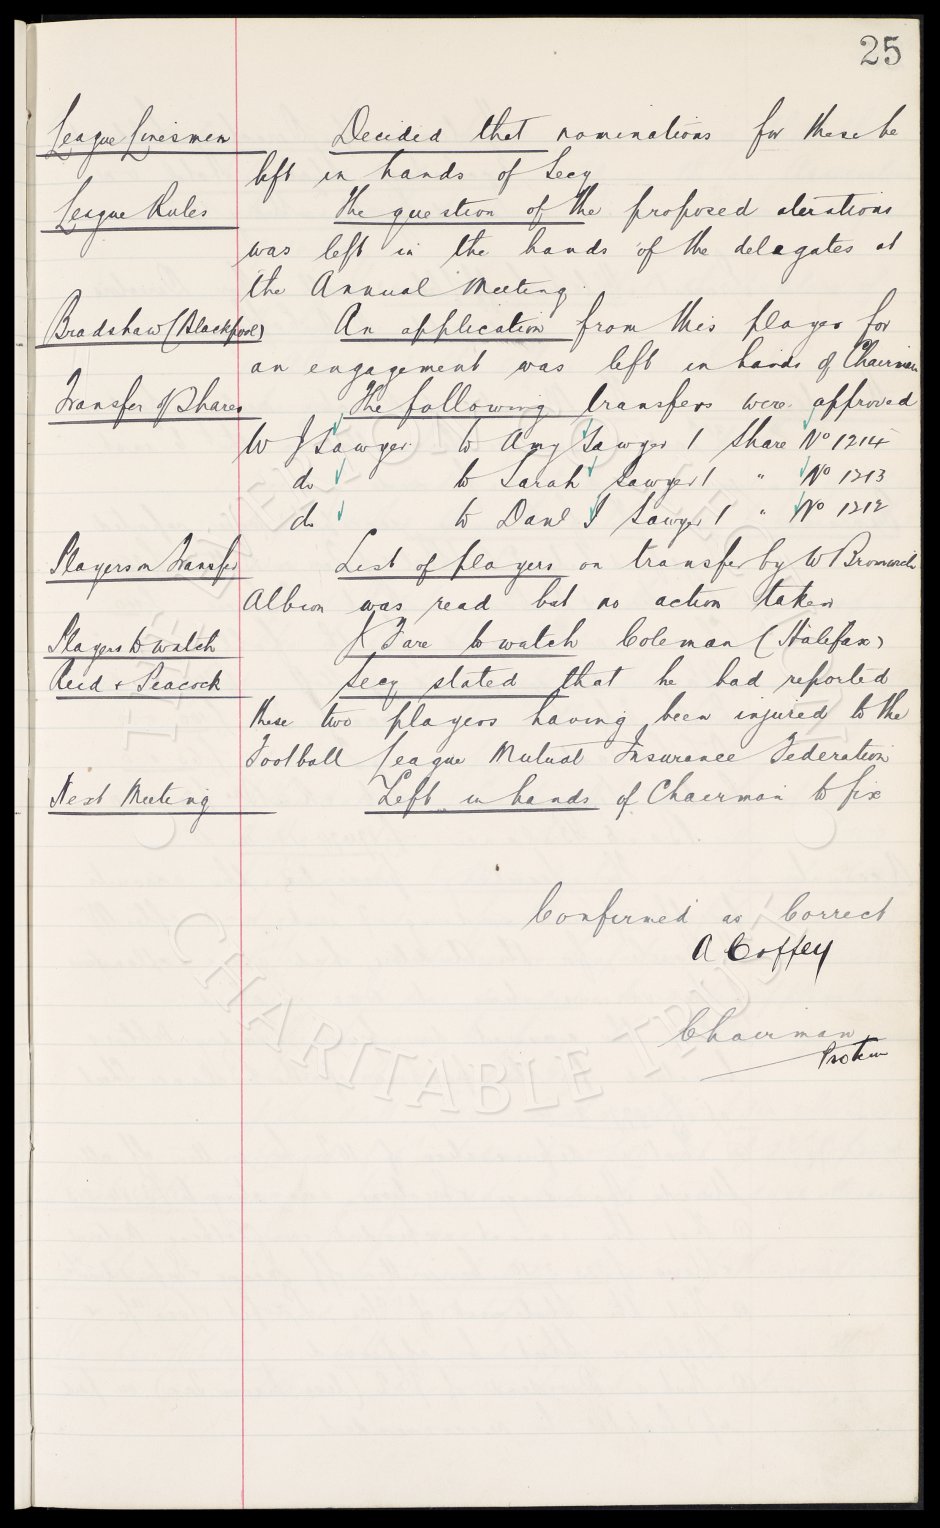 25
League Linesmen Decided that nominations for these be
left in hands of Secy
League Rules The question of the proposed alerations
was left in the hands of the delagates at
the Annual Meeting.
Bradshaw (Blackpool) An application from this player for
an engagement was left in hands of Chairman
Transfer of Shares The following transfers were approved
W J Sawyer to Amy Sawyer 1 Share No 1214
do to Sarah Sawyer 1 " No 1213
do to Danl J Sawyer 1 " No 1212
Players on Transfer List of players on transfer by W Bromwich
Albion was read but no action taken
Players to watch J Fare to watch Coleman (Halifax)
Reid & Peacock Secy stated that he had reported
these two players having been injured to the
Football League Mutual Insurance Federation
Next Meeting Left in hands of Chairman to fix
Confirmed as Correct
A Coffey
Chairman
Protem
THE EVERTON COLLECTION
CHARITABLE TRUST